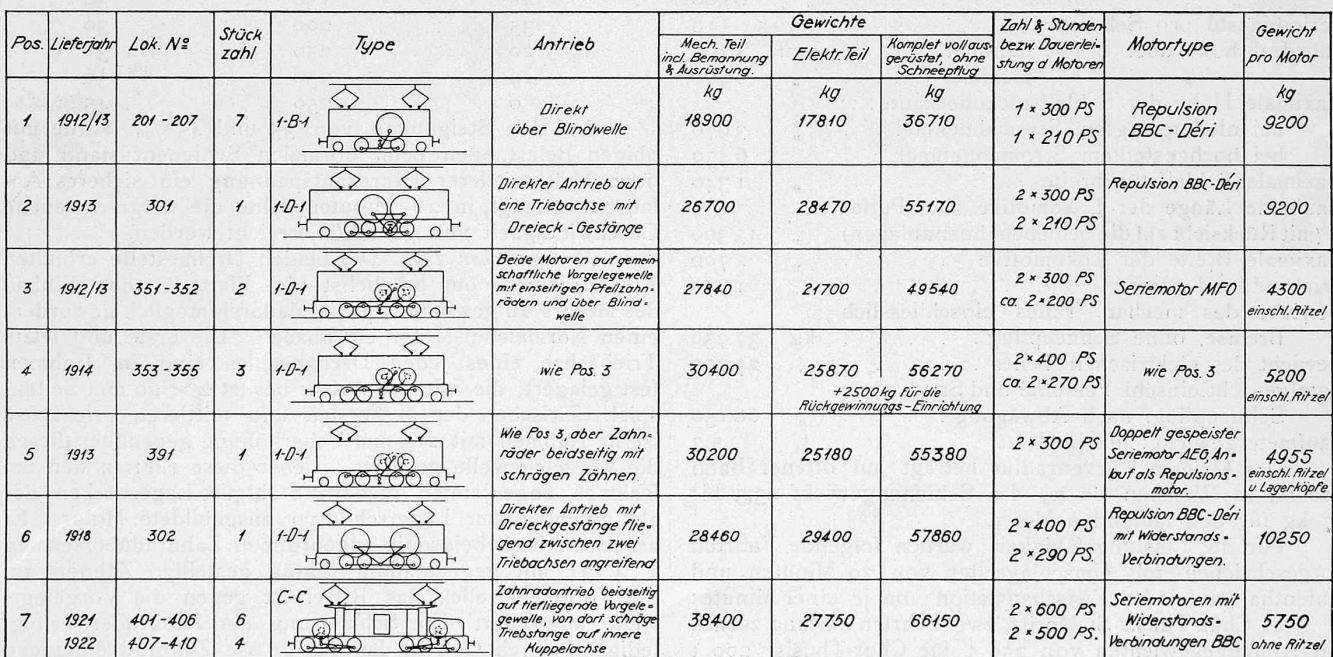 Gewichte
Pos. Lieferjahr Lok. Nº Stückzahl Type Antrieb Mech. Teil incl. Bemannung & Ausrüstung. Elektr. Teil Komplet voll ausgerüstet, ohne Schneepflug Zahl & Stunden- bezw. Dauerleistung d Motoren Motortype Gewicht pro Motor
kg kg kg kg
1 1912/13 201 - 207 7 1-B-1 Direkt über Blindwelle 18900 17810 36710 1 × 300 PS 1 × 210 PS Repulsion BBC-Déri 9200
2 1913 301 1 1-D-1 Direkter Antrieb auf eine Triebachse mit Dreieck-Gestänge 26700 28470 55170 2 × 300 PS 2 × 210 PS Repulsion BBC-Déri 9200
3 1912/13 351-352 2 1-D-1 Beide Motoren auf gemeinschaftliche Vorgelegewelle mit einseitigen Pfeilzahnrädern und über Blindwelle 27840 21700 49540 2 × 300 PS ca. 2×200 PS Seriemotor MFO 4300 einschl. Ritzel
4 1914 353-355 3 1-D-1 wie Pos. 3 30400 25870 56270 2 × 400 PS ca. 2×270 PS wie Pos. 3 5200 einschl. Ritzel
+2500 kg für die Rückgewinnungs-Einrichtung
5 1913 391 1 1-D-1 Wie Pos. 3, aber Zahnräder beidseitig mit schrägen Zähnen. 30200 25180 55380 2 × 300 PS Doppelt gespeister Seriemotor AEG, Anlauf als Repulsionsmotor. 4955 einschl. Ritzel u Lagerköpfe
6 1918 302 1 1-D-1 Direkter Antrieb mit Dreieckgestänge fliegend zwischen zwei Triebachsen angreifend 28460 29400 57860 2 × 400 PS 2 × 290 PS Repulsion BBC-Déri mit Widerstands-Verbindungen. 10250
7 1921 401-406 6 C-C. Zahnradantrieb beidseitig auf tiefliegende Vorgelegewelle, von dort schräge Triebstange auf innere Kuppelachse 38400 27750 66150 2 × 600 PS 2 × 500 PS. Seriemotoren mit Widerstands-Verbindungen BBC 5750 ohne Ritzel
1922 407-410 4